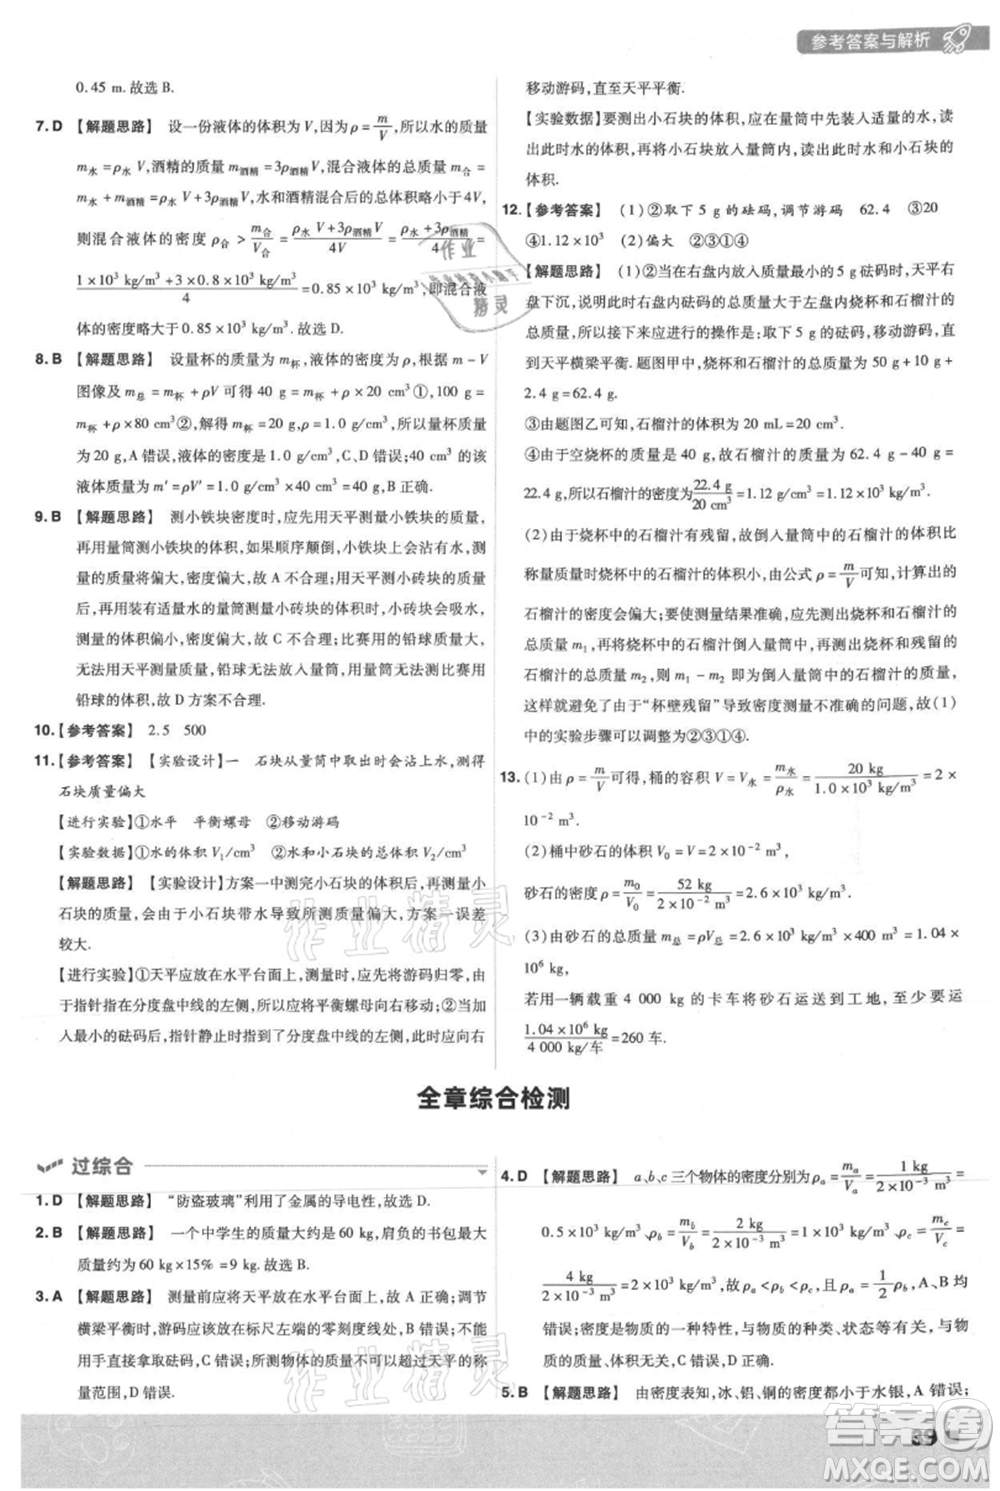 参考答案与解析
0.45 m.故选 B.
7. D 【解题思路】 设一份液体的体积为 V,因为 ρ = m/V,所以水的质量
m水 = ρ水 V,酒精的质量 m酒精 = 3ρ酒精 V,混合液体的总质量 m合 =
m水 + m酒精 = ρ水 V + 3ρ酒精 V,水和酒精混合后的总体积略小于 4V,
则混合液体的密度 ρ合 = m合/V合 = (ρ水 V + 3ρ酒精 V)/4V = (ρ水 + 3ρ酒精)/4 =
(1 × 10³ kg/m³ + 3 × 0.8 × 10³ kg/m³)/4 = 0.85 × 10³ kg/m³,即混合液
体的密度略大于 0.85 × 10³ kg/m³.故选 D.
8. B 【解题思路】 设量杯的质量为 m杯,液体的密度为 ρ,根据 m - V
图像及 m总 = m杯 + ρV 可得 40 g = m杯 + ρ × 20 cm³①,100 g =
m杯 + ρ × 80 cm³②,解得 m杯 = 20 g,ρ = 1.0 g/cm³,所以量杯质量
为 20 g,A 错误;液体的密度为 1.0 g/cm³,C、D 错误;40 cm³ 的该
液体质量 m′ = ρV′ = 1.0 g/cm³ × 40 cm³ = 40 g,B 正确.
9. B 【解题思路】 测小铁块密度时,应先用天平测小铁块的质量,
再用量筒测小铁块的体积,如果顺序颠倒,小铁块上会沾有水,测
得的质量偏大,密度偏大,故 A 不合理;用天平测小砖块的质量,
再用装有适量水的量筒测小砖块的体积,由于小砖块会吸水,
测量的体积偏小,密度偏大,故 C 不合理;比赛用的铅球质量过大,
无法用天平测量质量,铅球无法放入量筒,则无法测量比赛用
铅球的体积,故 D 方案不合理.
10. 【参考答案】 2.5 500
11. 【参考答案】 【实验设计】一 石块从量筒中取出时会沾上水,测得
石块质量偏大
【进行实验】①水平 平衡螺母 ②移动游码
【实验数据】①水的体积 V₁/cm³ ②水和石块的总体积 V₂/cm³
【解题思路】 【实验设计】方案一中测完小石块的体积后,再测量小
石块的质量,会由于小石块带水导致所测质量偏大,方案一误差
较大.
【进行实验】①天平应放在水平台面上,测量时,应先将游码归零,由
于指针指在分度盘中线的左侧,所以应将平衡螺母向右移动;②当加
入最小的砝码后,指针静止时指到了分度盘中线的左侧,此时应向右
移动游码,直至天平平衡.
【实验数据】要测出小石块的体积,应在量筒中先装入适量的水,读
出此时水的体积,再将小石块放入量筒内,读出水和小石块的
体积.
12. 【参考答案】 (1)②取下 5 g 的砝码,调节游码 62.4 ③20
④1.12 × 10³ (2)偏大 ②③①④
【解题思路】 (1)②因为在右盘内放入最小的 5 g 砝码时,天平右
盘下沉,说明右盘内砝码的总质量大于左盘内烧杯和石榴汁的总
质量,所以接下来应进行的操作是:取下 5 g 的砝码,移动游码,直
到天平横梁平衡.题图甲中,烧杯和石榴汁的总质量为 50 g + 10 g +
2.4 g = 62.4 g.
③由题图乙可知,石榴汁的体积为 20 mL = 20 cm³.
④由于空烧杯的质量为 40 g,则石榴汁的质量为 62.4 g - 40 g =
22.4 g,所以石榴汁的密度为 22.4 g/20 cm³ = 1.12 g/cm³ = 1.12 × 10³ kg/m³.
(2)由于烧杯中的石榴汁有残留,故倒入量筒中的石榴汁的体积比
称量质量时烧杯中的石榴汁的体积小,由公式 ρ = m/V 可知,计算出的
石榴汁的密度会偏大;要使测量结果准确,应先测出烧杯和石榴汁的
总质量 m₁,再将烧杯中的石榴汁倒入量筒中,测出烧杯和残留的
石榴汁的总质量 m₂,则 m₁ - m₂ 就是倒入量筒中的石榴汁的质量,
由于“杯壁残留”导致密度测量不准确的问题,故(1)
中的实验步骤可以调整为②③①④.
13. (1)由 ρ = m/V 可得,桶的容积 V = V水 = m水/ρ水 = 20 kg/(1.0 × 10³ kg/m³) = 2 ×
10⁻² m³.
(2)桶中砂石的体积 V₀ = V = 2 × 10⁻² m³,
砂石的密度 ρ = m₀/V₀ = 52 kg/(2 × 10⁻² m³) = 2.6 × 10³ kg/m³.
(3)由砂石的总质量 m总 = ρV总 = 2.6 × 10³ kg/m³ × 400 m³ = 1.04 ×
10⁶ kg,
若用一辆载重 4 000 kg 的卡车将砂石运送到工地,至少要运
1.04 × 10⁶ kg/(4 000 kg/车) = 260 车.
全章综合检测
过综合
1. D 【解题思路】 “防盗玻璃”利用了金属的导电性,故选 D.
2. B 【解题思路】 一个中学生的质量大约为 60 kg,肩负的书包最大
质量约为 60 kg × 15% = 9 kg.故选 B.
3. A 【解题思路】 测量前应将天平放在水平台面上,A 正确;调节
横梁平衡时,游码应该放在标尺左端的零刻度线处,B 错误;不能
用手直接拿取砝码,C 错误;所测物体的质量不能超过天平的称
量范围,D 错误.
4. D 【解题思路】 a、b、c 三个物体的密度分别为 ρa = ma/Va = 1 kg/(2 × 10⁻³ m³) =
0.5 × 10³ kg/m³、ρb = mb/Vb = 2 kg/(2 × 10⁻³ m³) = 1 × 10³ kg/m³、ρc = mc/Vc =
4 kg/(2 × 10⁻³ m³) = 2 × 10³ kg/m³,故 ρa < ρb < ρc,且 ρa = 1/2 ρb,A、B 均
错误;密度为物质的一种特性,与物质的种类、状态等有关,C
错误,D 正确.
5. B 【解题思路】 由密度表知,冰、铝、铜的密度都小于水银,A 错误;
39
作业精灵
答案圈
MXQE.COM